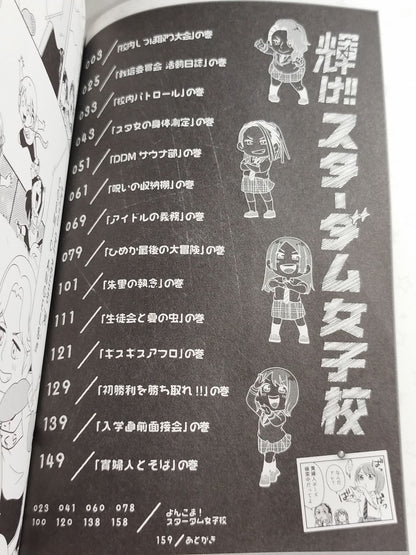 輝け!!スターダム女子校
003/「校内しっぽ取り大会」の巻
025/「報道委員会 活動日誌」の巻
033/「校内パトロール」の巻
043/「スタ女の身体測定」の巻
051/「DDMサウナ部」の巻
061/「呪いの収納棚」の巻
069/「アイドルの義務」の巻
079/「ひめか最後の大冒険」の巻
101/「朱里の執念」の巻
111/「生徒会と愛の虫」の巻
121/「ギスギスアフロ」の巻
129/「初勝利を勝ち取れ!!」の巻
139/「入学直前面接会」の巻
149/「貴婦人とそば」の巻
023 041 060 078
100 120 138 158
/よんこま!
スターダム女子校
159/あとがき